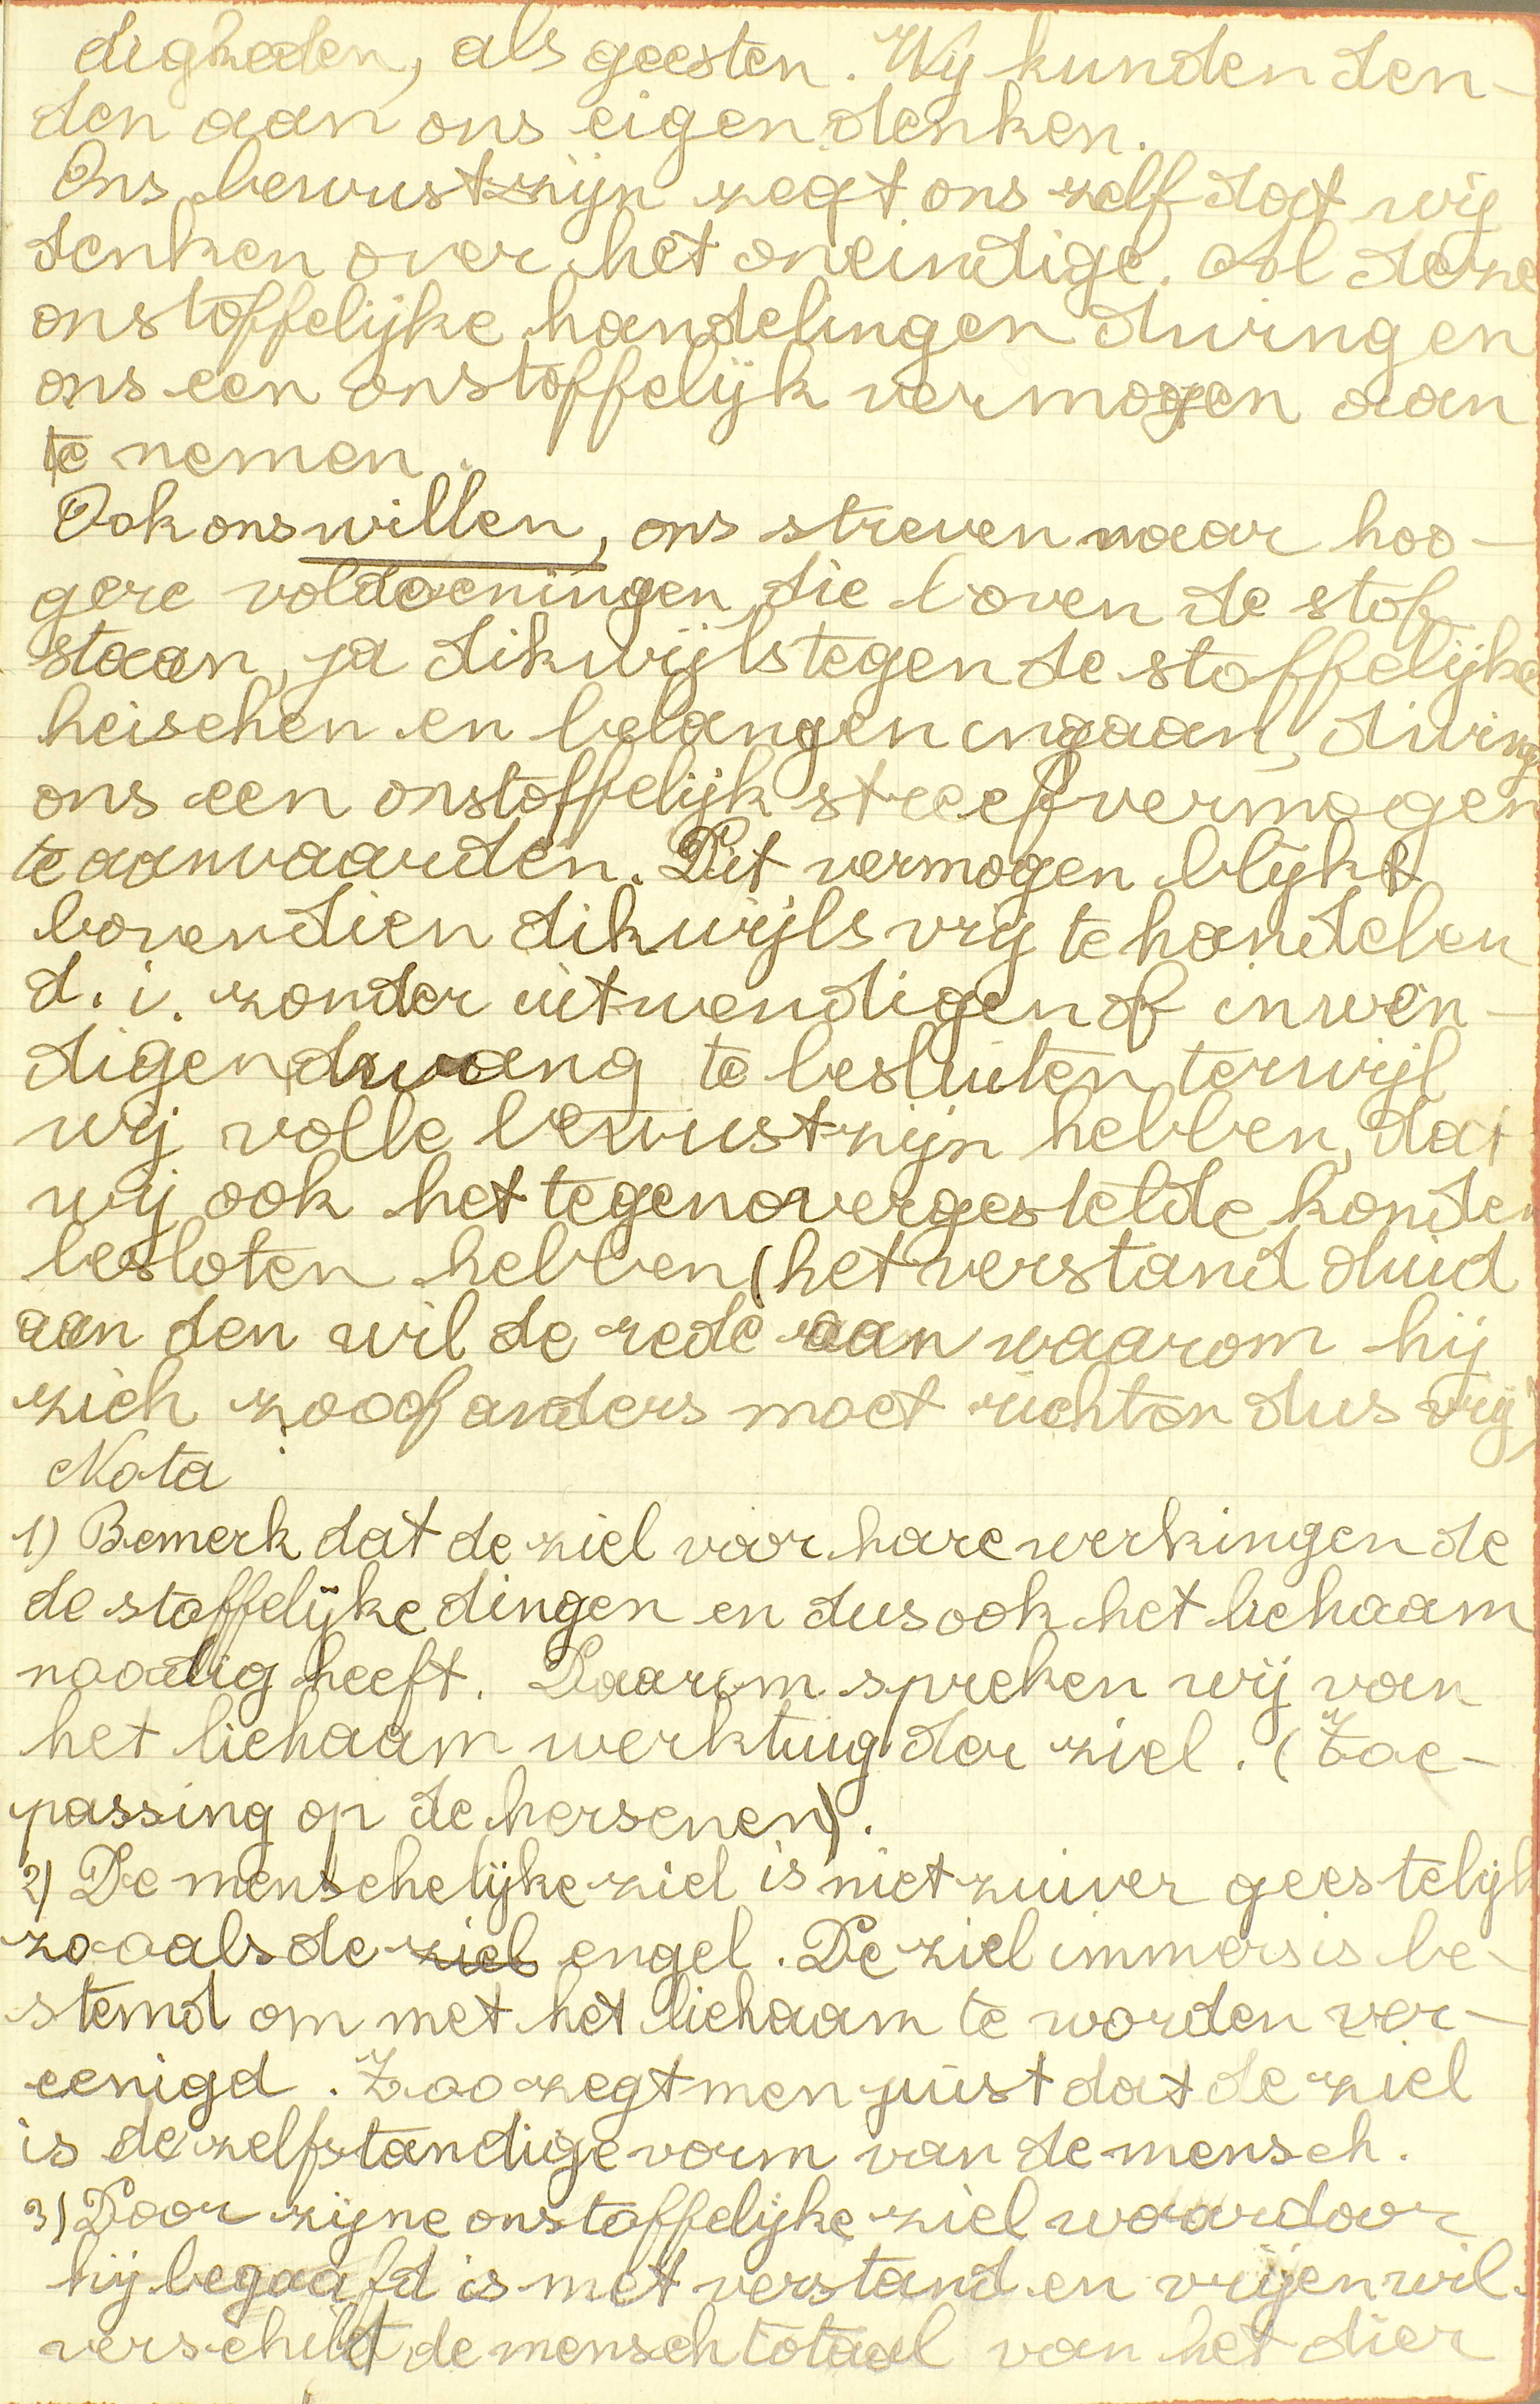 digheden, als geesten. Wij kunden den-
den aan ons eigen denken.
Ons bewustzijn zegt ons zelf dat wij
denken over het oneindige. Al deze
onstoffelijke handelingen dwingen
ons een onstoffelijk vermogen aan
te nemen.
Ook ons willen, ons streven naar hoo-
gere voldoeningen die boven de stof
staan, ja dikwijls tegen de stoffelijke
heischen en belangen ingaan, dwing
ons een onstoffelijk streefvermogen
te aanvaarden. Dit vermogen blijkt
bovendien dikwijls vrij te handelen
d. i. zonder uitwendigen of inwen-
digen dwang te besluiten terwijl
wij volle bewustzijn hebben, dat
wij ook het tegenovergestelde konden
besloten hebben (het verstand duid
aan den wil de rede aan waarom hij
zich zoo of anders moet richten dus vrij)
Nota
1) Bemerk dat de ziel voor hare werkingen de
de stoffelijke dingen en dus ook het lichaam
noodig heeft. Daarom spreken wij van
het lichaam werktuig der ziel. (Toe-
passing op de hersenen).
2) De menschelijke ziel is niet zuiver geestelijk
zooals de ziel engel. De ziel immers is be-
stemd om met het lichaam te worden ver-
eenigd. Zoo zegt men juist dat de ziel
is de zelfstandige vorm van de mensch.
3) Door zijne onstoffelijke ziel waardoor
hij begaafd is met verstand en vrijen wil.
verschilt de mensch totaal van het dier